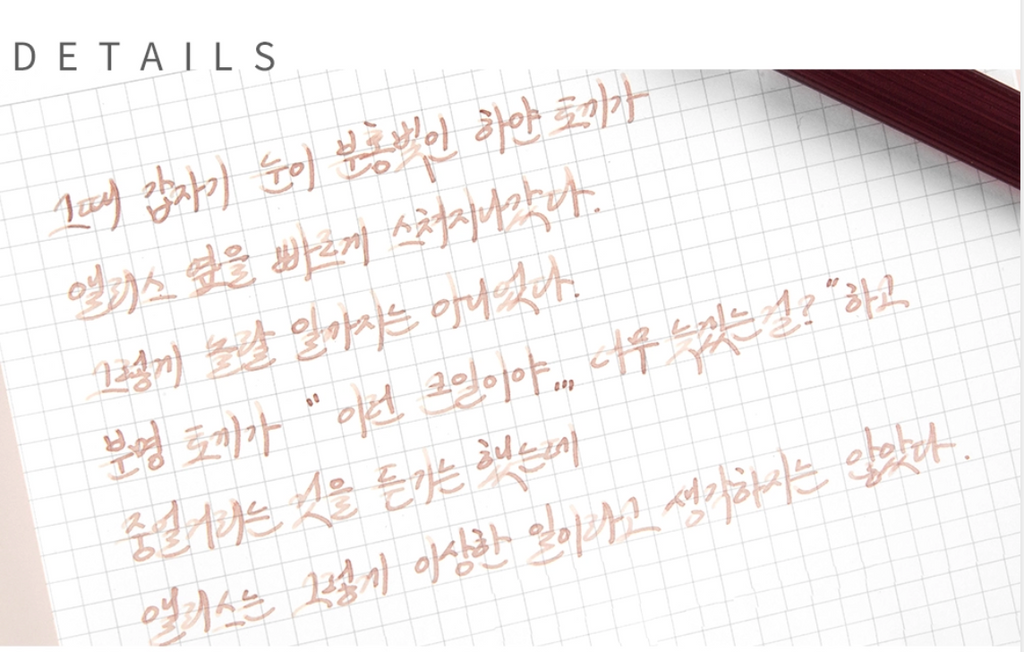 DETAILS
그때 갑자기 눈이 분홍빛인 하얀 토끼가
앨리스 옆을 빠르게 스쳐지나갔다.
그렇게 놀랄 일까지는 아니었다.
분명 토끼가 " 이런 큰일이야... 너무 늦겠는걸? " 하고
중얼거리는 것을 듣기는 했는데
앨리스는 그렇게 이상한 일이라고 생각하지는 않았다.